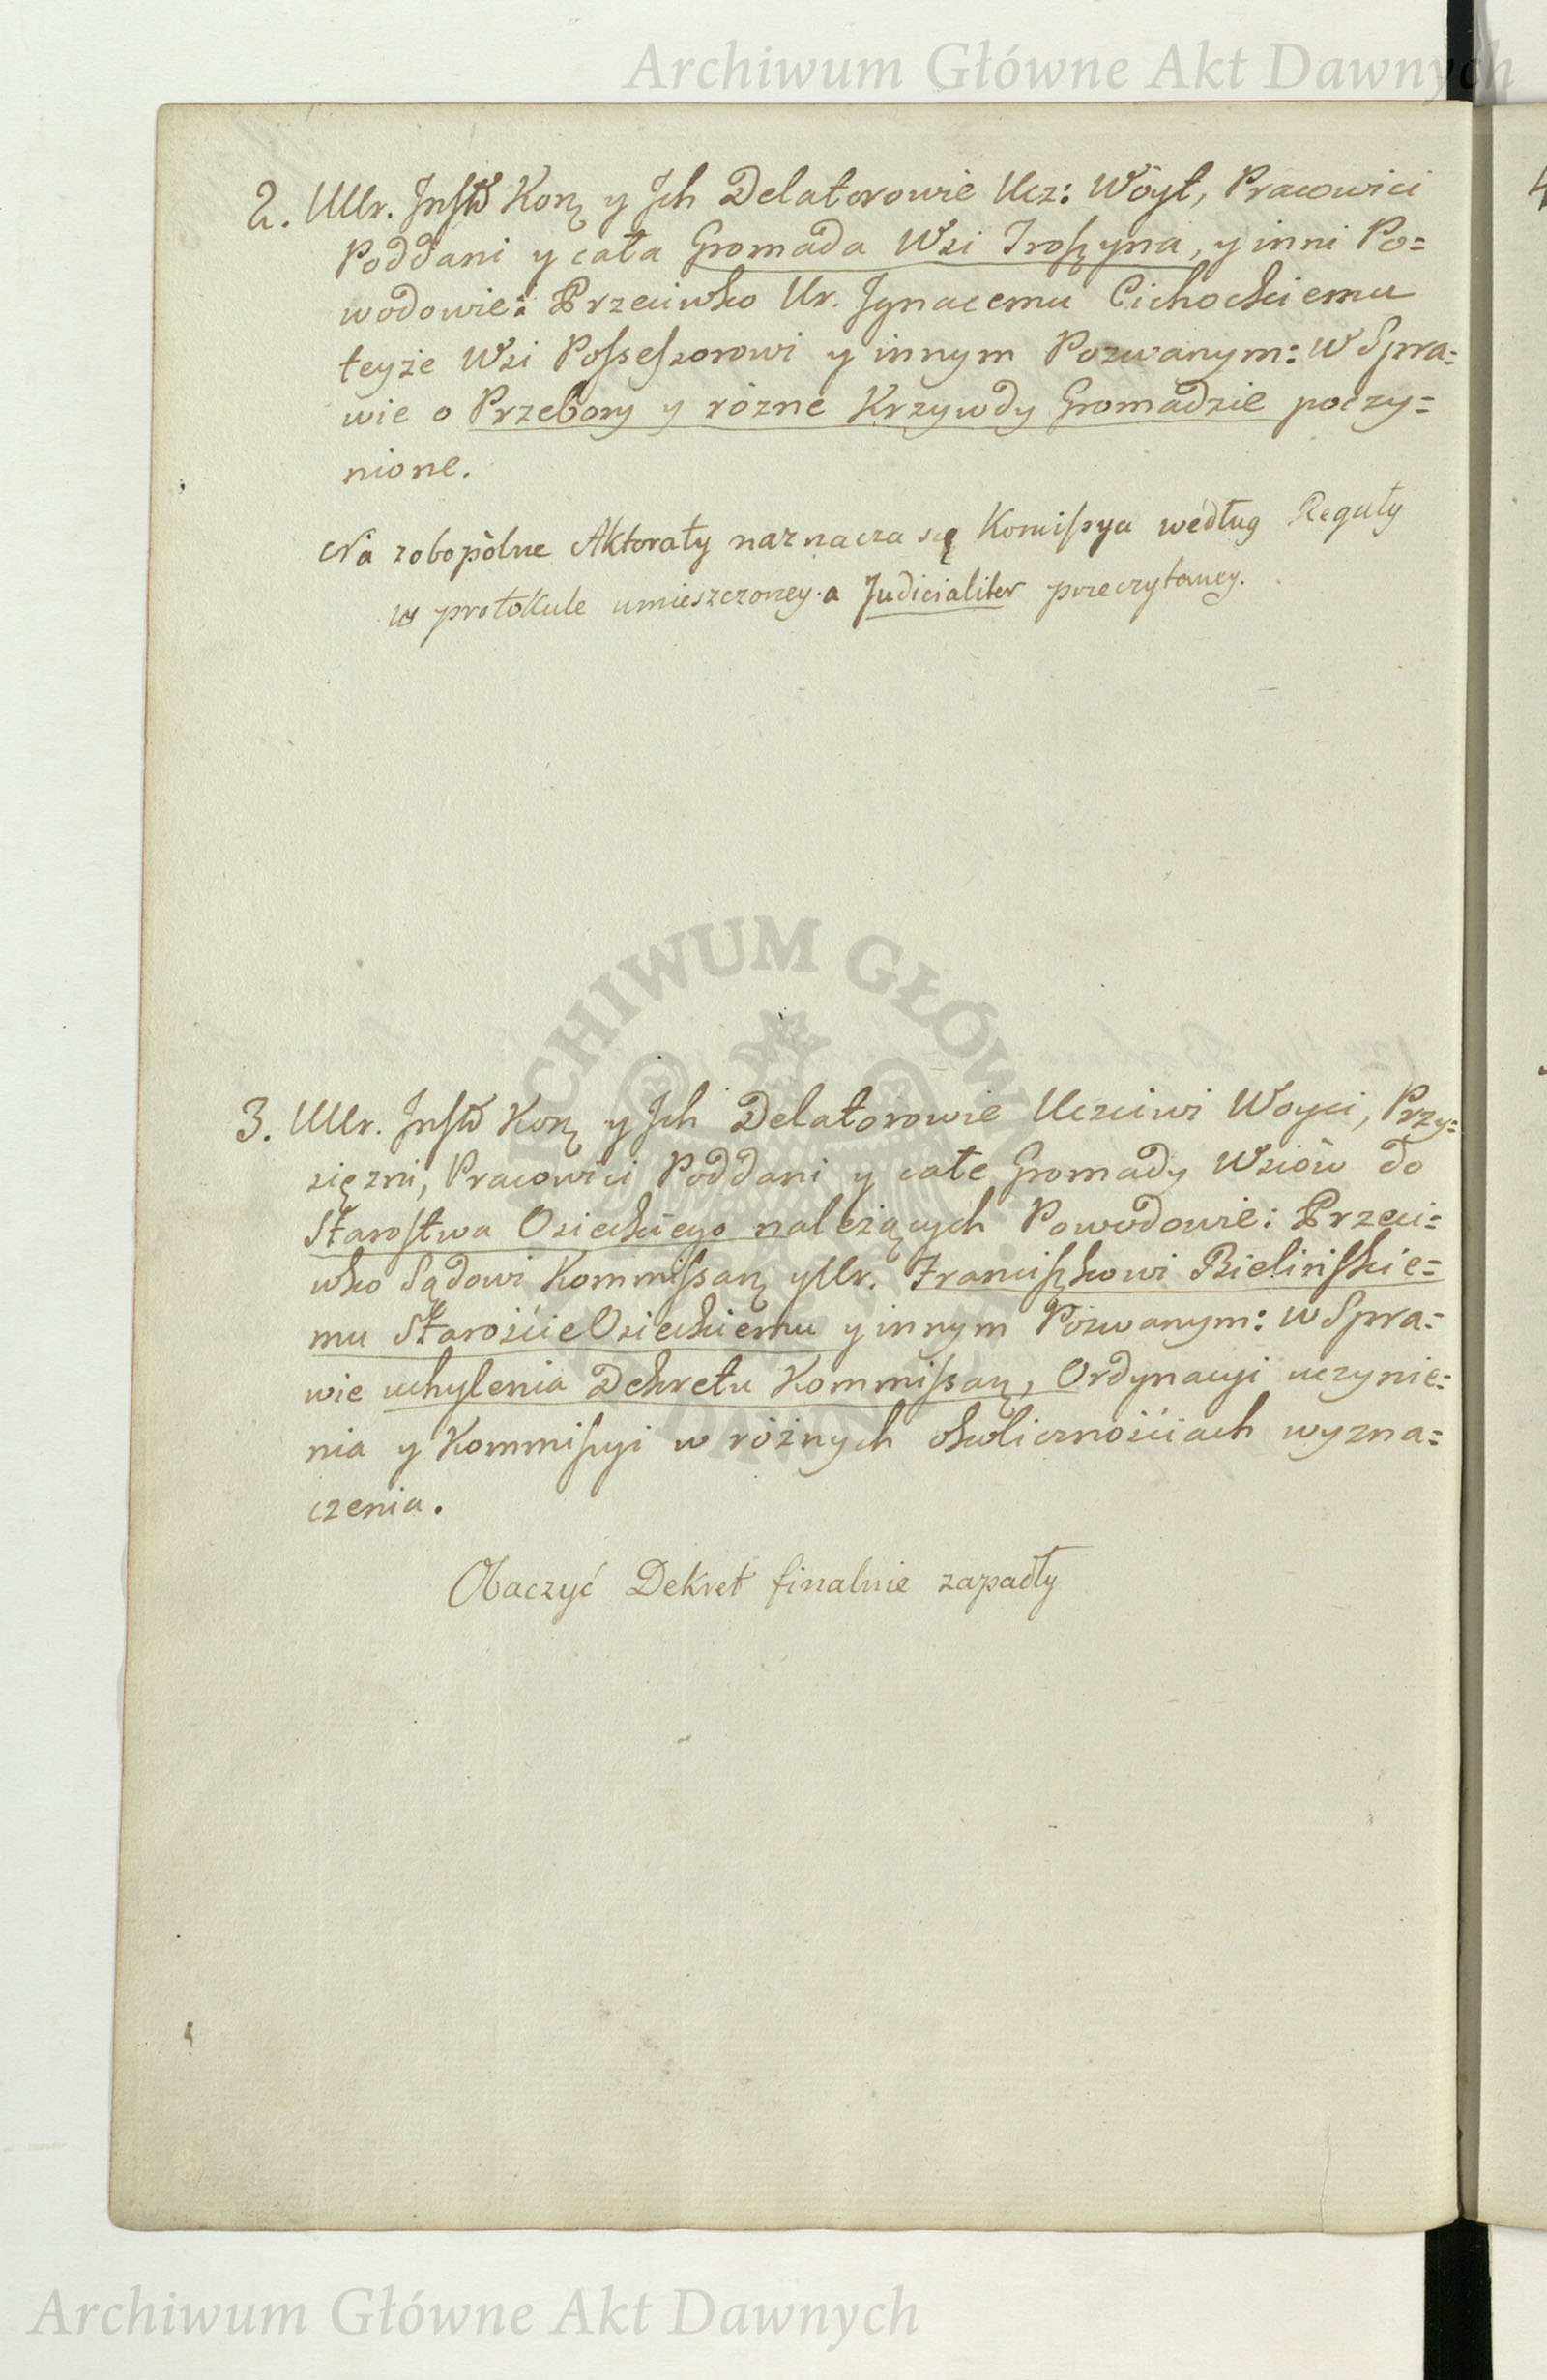 Archiwum Główne Akt Dawnych
2. UUr. Instɔ Korɔ y Ich Delatorowie Ucz: Wóyt, Pracowici
Poddani y cała Gromada Wsi Troszyna, y inni Po=
wodowie: Przeciwko Ur. Ignacemu Cichockiemu
teyże Wsi Possessorowi y innym Pozwanym: W Spra=
wie o Przebory y rózne Krzywdy Gromadzie poczy=
nione.
Na zobopólne Aktoraty naznacza się Komissya według Reguły
w protokule umieszczoney a Judicialiter przeczytaney.
ARCHIWUM GŁÓWNE AKT DAWNYCH
3. UUr. Instɔ Korɔ y Ich Delatorowie Uczciwi Woyci, Przy=
sięzni, Pracowici Poddani y całe Gromady Wsiów do
Starostwa Osieckiego należących Powodowie: Przeci=
wko Sądowi Kommissarɔ y Ur. Franciszkowi Bielińskie=
mu Starościе Osieckiemu y innym Pozwanym: W Spra=
wie uchylenia Dekretu Kommissarɔ, Ordynacyi uczynie=
nia y Kommissyi w różnych okolicznościach wyzna=
czenia.
Obaczyć Dekret finalnie zapadły
Archiwum Główne Akt Dawnych